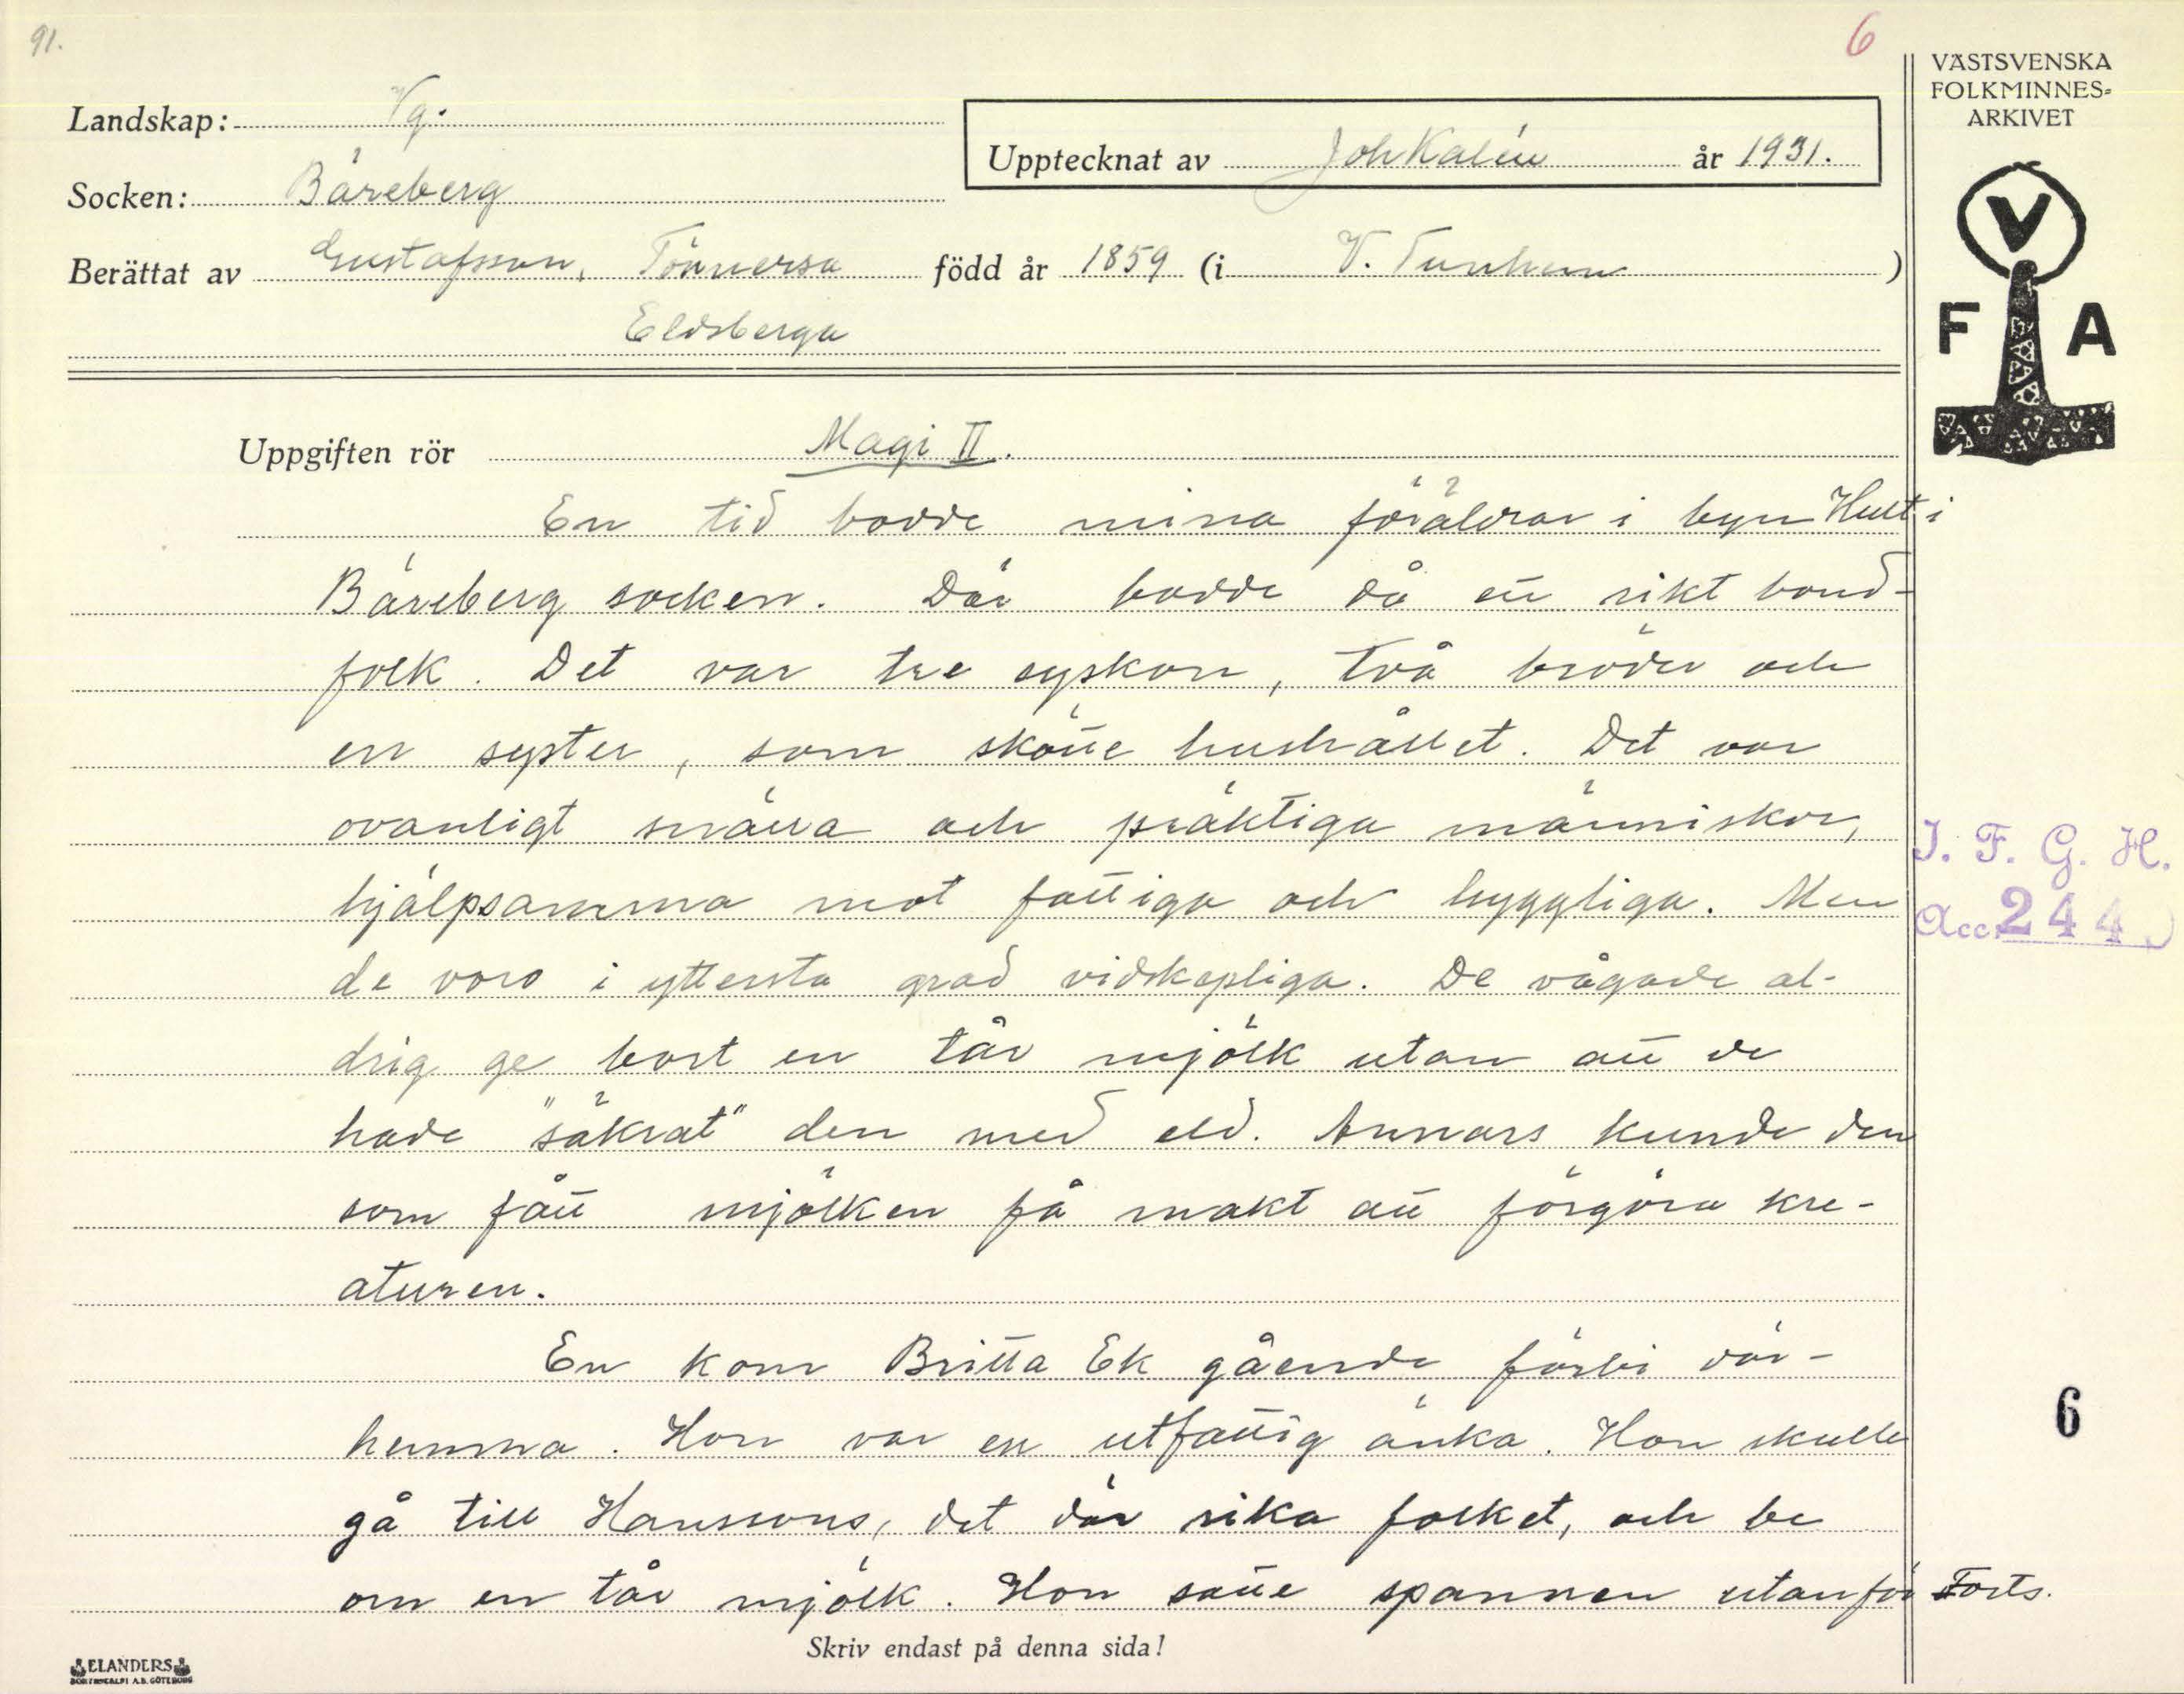 91.
6
VÄSTSVENSKA
FOLKMINNES-
ARKIVET
Landskap: Vg.
Upptecknat av Joh Kalén år 1931.
Socken: Bäreberg
Berättat av Gustafsson, Tönnersa född år 1859 (i V. Tunhem )
Eldsberga
V
F A
Uppgiften rör Magi II.
En tid bodde mina föräldrar i byn Hult i
Bäreberg socken. Där bodde då ett rikt bond-
folk. Det var tre syskon, två bröder och
en syster, som skötte hushållet. Det var
ovanligt snälla och präktiga människor,
hjälpsamma mot fattiga och hyggliga. Men
de voro i yttersta grad vidskepliga. De vågade al-
drig ge bort en tår mjölk utan att de
hade "säkrat" den med eld. Annars kunde den
som fått mjölken få makt att förgöra kre-
aturen.
En kom Britta Ek gående förbi där-
hemma. Hon var en utfattig änka. Hon skulle
gå till Hanssons, det där rika folket, och be
om en tår mjölk. Hon satte spannen utanför
Forts.
J. F. G. H.
Acc. 244
6
Skriv endast på denna sida!
ELANDERS
BOKTRYCKERI A.B. GÖTEBORG